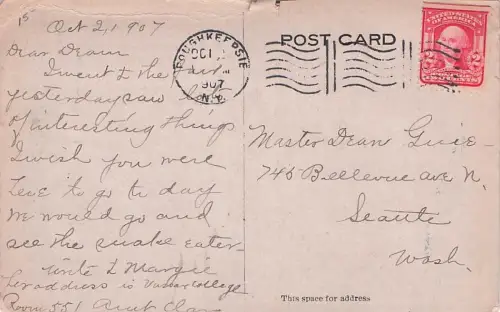 15
Oct 2, 1907
Dear Dean
I went to the fair
yesterday saw lots
of interesting things
I wish you were
here to go to day
we would go and
see the snake eater
write to Margie
her address is Vassar College
Room 551
POUGHKEEPSIE
OCT
1907
N.Y.
POST CARD
UNITED STATES OF AMERICA
2
Master Dean
745 Bellevue ave N.
Seattle
Wash.
This space for address